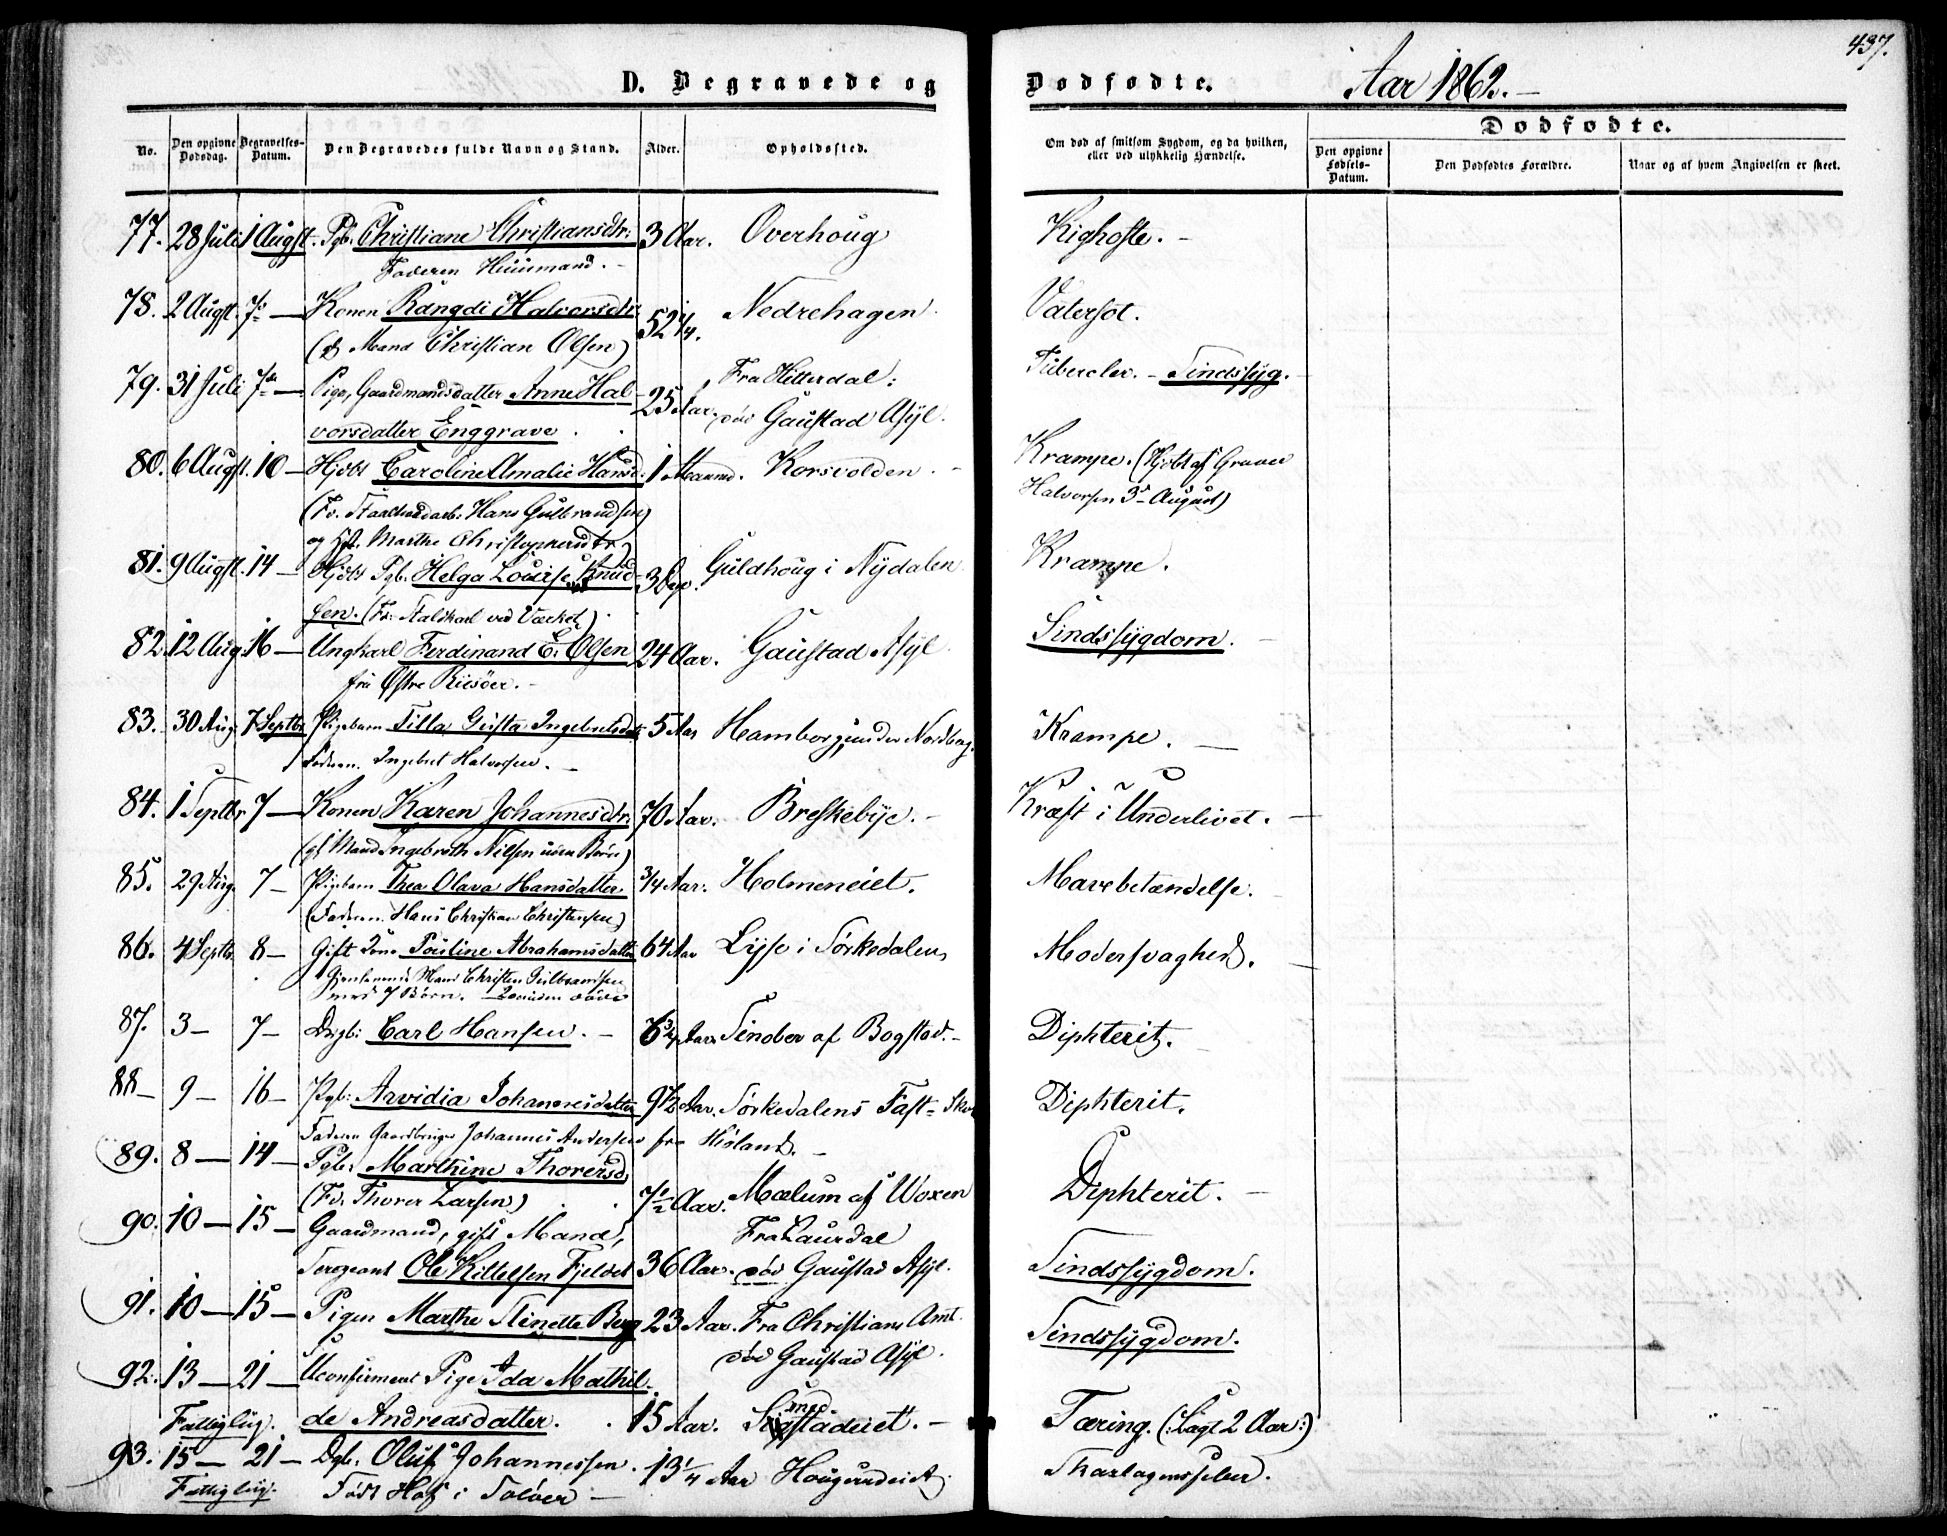 437.
D. Begravede og
Dødfødte.
Aar 1862.
No.
Den opgivne Dødsdag.
Begravelses-Datum.
Den Begravedes fulde Navn og Stand.
Alder.
Opholdssted.
Om død af smitsom Sygdom, og da hvilken, eller ved ulykkelig Hændelse.
Dødfødte.
Den opgivne Fødsels-Datum.
Den Dødfødtes Forældre.
Naar og af hvem Angivelsen er skeet.
77. 28 Juli 1 Augst. Pgb. Christiane Christiansdtr: 3 Aar. Overhoug Kighoste.
Faderen Huusmand.
78. 2 Augst. 7de — Konen Rangdi Halvorsdtr 52 1/4. Nedrehagen Vatersot.
(g Mand Christian Olsen)
79. 31 Juli 7de — Pige, Gaardmandsdatter Anne Hal- 25 Aar. Fra Hitterdal: Tubercler. — Sindssyg.
vorsdatter Enggrave. død Gaustad Asyl.
80. 6 Augst. 10 — Hjdbt Caroline Amalie Hansd: 1 Maaned. Korsvolden Krampe. (Hjdbt af Graver
Halvorsen 3d August)
(Fv. Hans Gulbrandsen
og Marthe Christophersdtr)
81. 9 Augst. 14 — Hjdbt Pgb. Helga Lovise Knud- 3 Guldhoug i Nydalen Krampe.
sen. (Fv: Staldkarl ved Værket)
82. 12 Aug. 16 — Ungkarl Ferdinand E. Olsen 24 Aar. Gaustad Asyl Sindssygdom.
fra Østre Riisöer.
83. 30 Aug. 7 Septbr Pigebarn Tilla Gusta Ingebretsdatt 5 Aar Hamborg under Nordberg. Krampe.
Faderen. Ingebret Halvorsen.
84. 1 Septbr 7 — Konen Karen Johannesdtr: 70 Aar. Breskebye. Kræft i Underlivet.
(gl Mand Ingebreth Nilsen uden Børn)
85. 29 Aug. 7 — Pigebarn Thea Olava Hansdatter 3/4 Aar. Holmeneiet. Mavebetændelse.
(Faderen. Hans Christian Christensen)
86. 4 Septb. 8 — Gift Kone Pouline Abrahamsdatter 64 Aar Lysse i Sørkedalen Modersvaghed.
Gjenlevende Mand Christen Gulbrandsen
med 7 Børn.
87. 3 — 7 — Drgb: Carl Hansen. 6 3/4 Aar. Sinober af Bogstad. Diphterit.
88 — 9 — 16 — Pgb: Arvidia Johannesdatter 9 1/2 Aar. Sørkedalens Fast- Skole Diphterit.
Faderen Gaardbruger Johannes Andersen fra Høland.
89. 8 — 14 — Pgb. Marthine Thorersd. 7 1/2 Aar. Mælum af Woxen Diphterit.
(Fv. Thorer Larsen)
90. 10 — 15 — Gaardmand, gift Mand, Fra Laurdal
Sergeant Ole Kittelsen Fjeldet 36 Aar. død Gaustad Asyl. Sindssygdom.
91. 10 — 15 — Pigen Marthe Stinette Berg 23 Aar. Fra Christians Amt. Sindssygdom.
død Gaustad Asyl.
92. 13 — 21 — Uconfirmert Pige Ida Mathil-
Fattiglig. de Andreasdatter. 15 Aar. Smestadeiet. Tæring. (:Lagt 2 Aar:)
93. 15 — 21 — Dgb. Oluf Johannessen. 13 1/4 Aar Hougerudeiet. Skarlagensfeber.
Fattiglig. Født Hof i Soløer